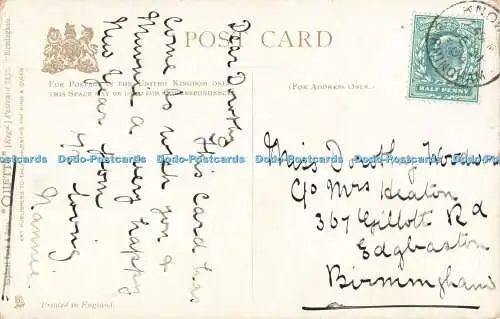 POST CARD
FOR POSTAGE IN THE UNITED KINGDOM ONLY
THIS SPACE MAY BE USED FOR CORRESPONDENCE
(FOR ADDRESS ONLY.)
HALF PENNY
Dear Dorothy
This Card has
Come to wish you &
Munnie a very happy
New Year from
yr loving
Nannie.
Miss Dorothy Woodward
C/o Mrs Heaton
367 Gillott Rd
Edgbaston
Birmingham
"OILETTE" [Regd.] Postcard
ART PUBLISHERS TO THEIR MAJESTIES THE KING & QUEEN
Printed in England.
Dodo-Postcards Dodo-Postcards Dodo-Postcards Dodo-Postcards Dodo-Postcards